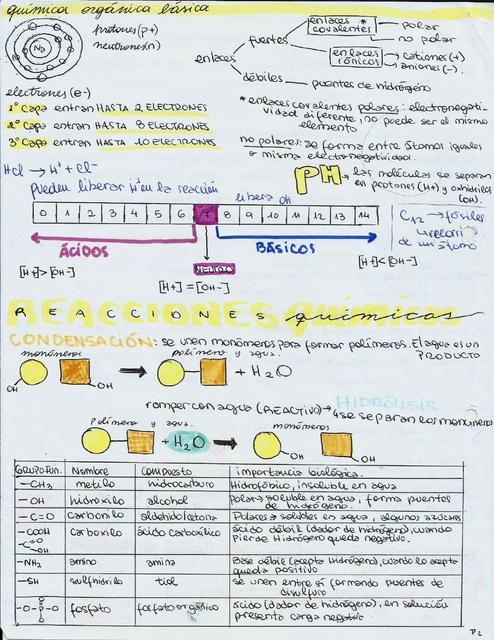 química orgánica básica
protones (p+)
neutrones (n)
Na
electrones (e-)
1º Capa entran HASTA 2 ELECTRONES
2º Capa entran HASTA 8 ELECTRONES
3º Capa entran HASTA 10 ELECTRONES
enlaces
fuertes
enlaces covalentes *
polar
no polar
enlaces iónicos
cationes (+)
aniones (-).
débiles
puentes de hidrógeno
* enlaces covalentes polares: electronegati-
vidad diferente, no puede ser el mismo
elemento
no polares: se forma entre átomos iguales
o misma electronegatividad.
HCl → H+ + Cl-
pueden liberar H+ en la reacción
libera OH
PH → las moléculas se separan
en protones (H+) y oxhidrilos
(OH).
0 1 2 3 4 5 6 7 8 9 10 11 12 13 14
ÁCIDOS
BÁSICOS
NEUTRO
[H+]>[OH-]
[H+]=[OH-]
[H+]<[OH-]
C12 → fósiles
de un átomo
REACCIONES químicas
CONDENSACIÓN: se unen monómeros para formar polímeros. El agua es un
PRODUCTO
monómeros
polímero y agua.
OH
OH
+ H2O
HIDRÓLISIS
romper con agua (REACTIVO) → se separan los monómeros
polímero y agua
monómeros
+ H2O
OH
OH
GRUPO FUN. Nombre COMPUESTO importancia biológica.
-CH3 metilo hidrocarburo Hidrofóbico, insoluble en agua
-OH hidroxilo alcohol Polar → soluble en agua, forma puentes
de hidrógeno.
-C=O carbonilo aldehído/cetona Polares → solubles en agua, algunos azúcares
-COOH carboxilo ácido carboxílico ácido débil (dador de hidrógeno), cuando
-C=O-OH pierde Hidrógeno queda negativo.
-NH2 amino amina Base débil (acepta Hidrógeno), cuando lo acepta
queda positivo
-SH sulfhidrilo tiol se unen entre sí formando puentes de
disulfuro
-O-P-O fosfato fosfato orgánico ácido (dador de hidrógeno), en solución
presenta carga negativa.
P2